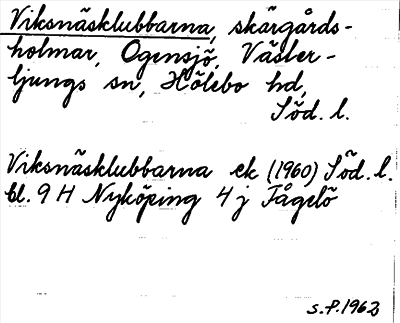 Viksnäsklubbarna, skärgårds-
holmar, Ogensjö, Väster-
ljungs sn, Hölebo hd,
Söd. l.
Viksnäsklubbarna ek (1960) Söd. l.
bl. 9 H Nyköping 4 j Fågelö
S.P. 1962